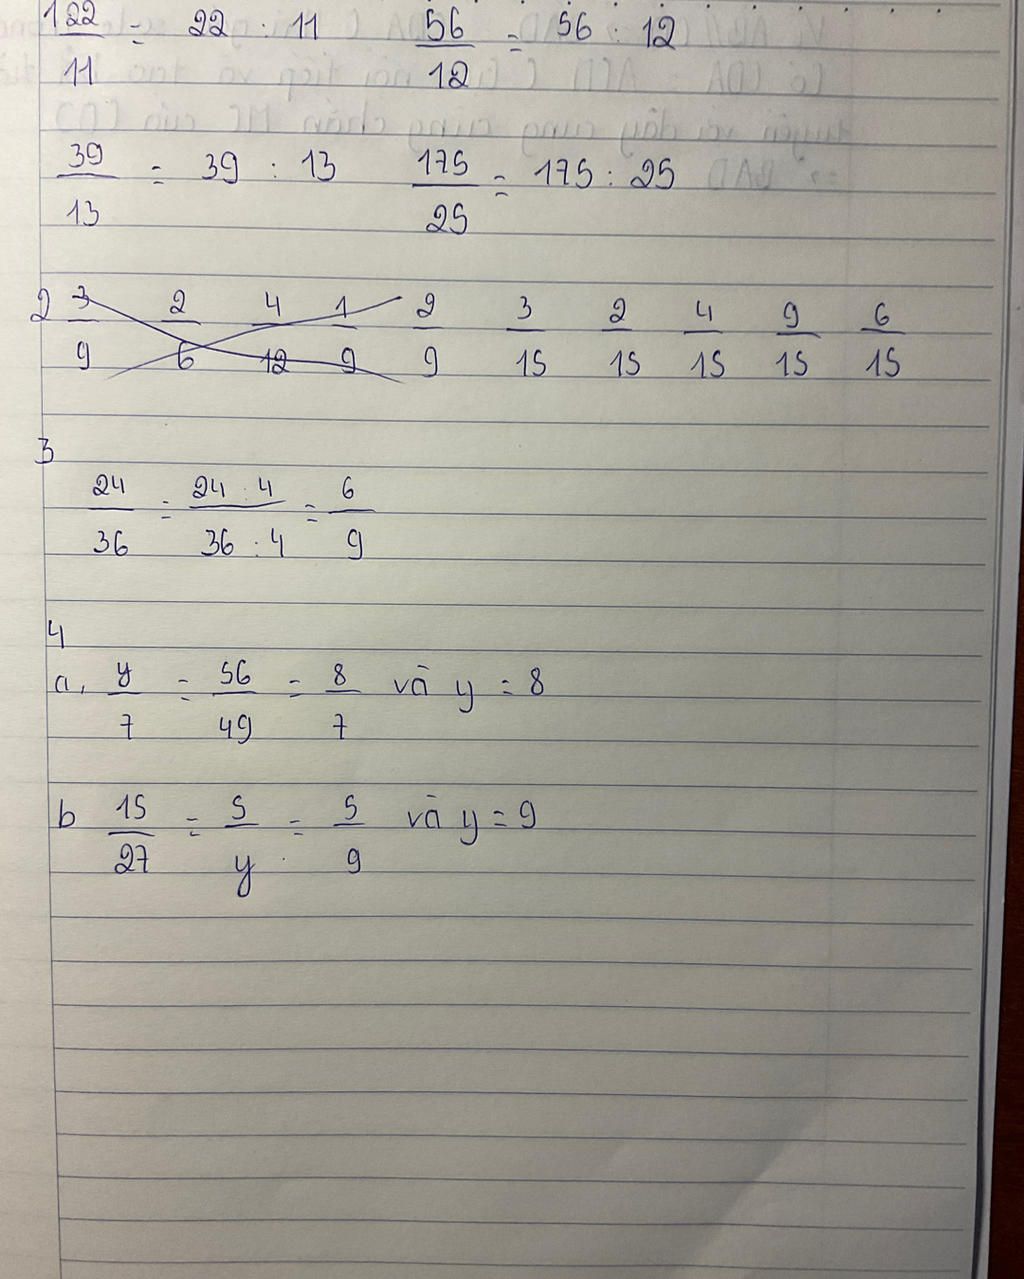 1 22/11 = 22 : 11 56/12 = 56 : 12
39/13 = 39 : 13 175/25 = 175 : 25
2 3/9 2/6 4/12 1/9 2/9 3/15 2/15 4/15 9/15 6/15
3
24/36 = 24 : 4/36 : 4 = 6/9
4
a, y/7 = 56/49 = 8/7 và y = 8
b 15/27 = 5/y = 5/9 và y = 9